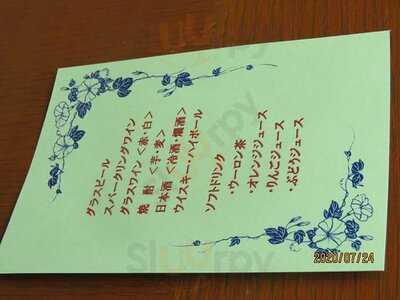 グラスビール
スパークリングワイン
グラスワイン <赤・白>
焼 酎 <芋・麦>
日本酒 <冷酒・燗酒>
ウイスキー・ハイボール
ソフトドリンク
・ウーロン茶
・オレンジジュース
・りんごジュース
・ぶどうジュース
2020/07/24